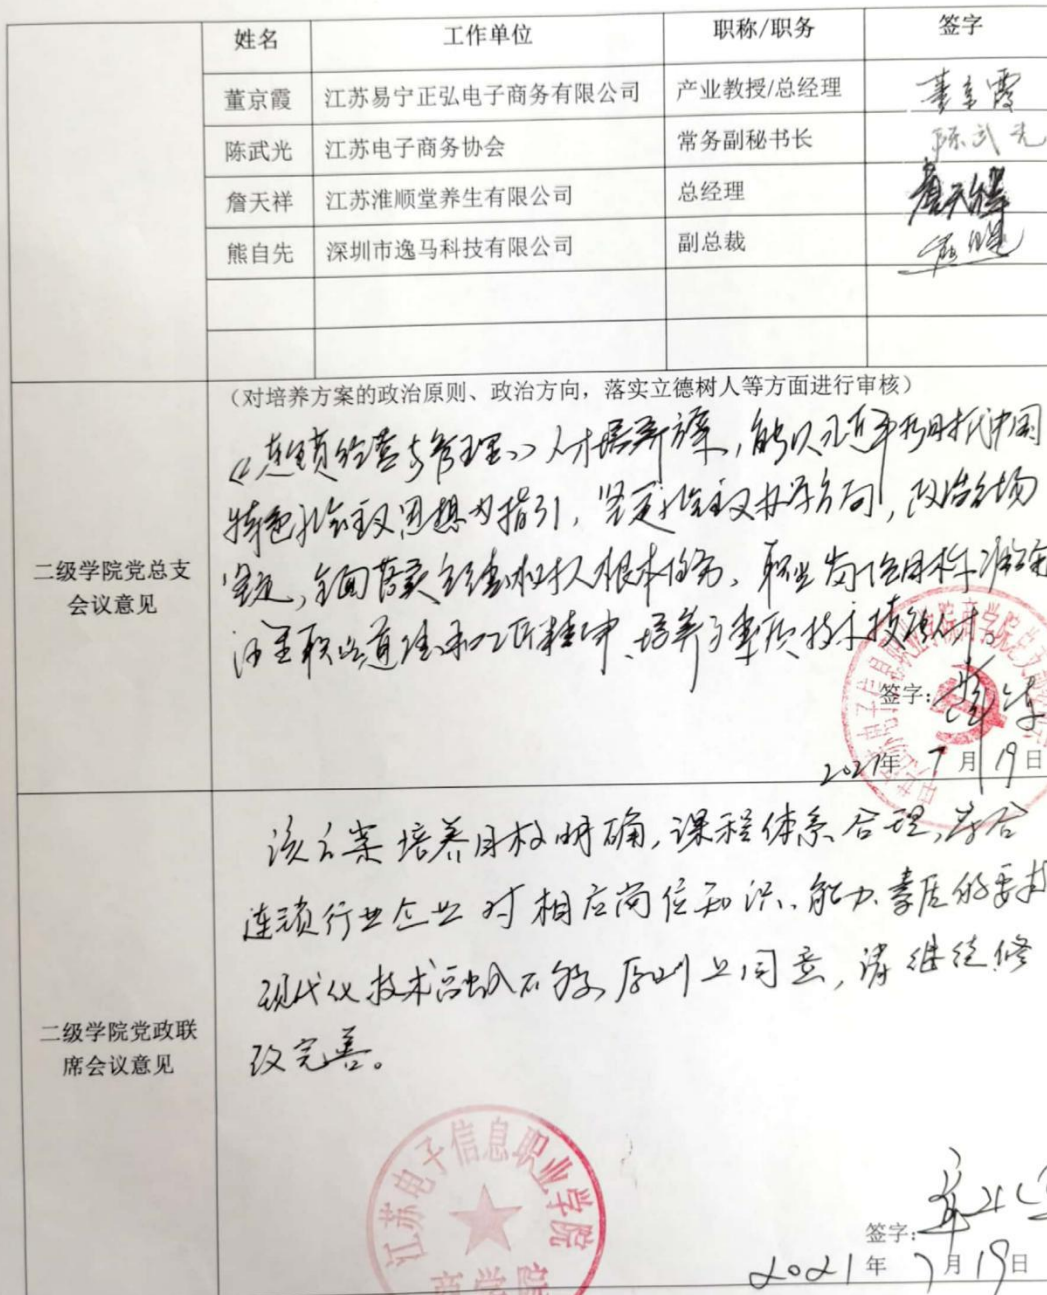 姓名 工作单位 职称/职务 签字
董京霞 江苏易宁正弘电子商务有限公司 产业教授/总经理 董京霞
陈武光 江苏电子商务协会 常务副秘书长 陈武光
詹天祥 江苏淮顺堂养生有限公司 总经理 詹天祥
熊自先 深圳市逸马科技有限公司 副总裁
二级学院党总支
会议意见
（对培养方案的政治原则、政治方向，落实立德树人等方面进行审核）
《连锁经营与管理》人才培养方案，能以习近平新时代中国
特色社会主义思想为指引，坚定社会主义办学方向，政治立场
坚定，全面落实立德树人根本任务、职业岗位目标准确
职业道德和工匠精神、培养高素质技术技能人才。
签字：
2021年7月19日
二级学院党政联
席会议意见
该方案培养目标明确，课程体系合理，符合
连锁行业企业对相应岗位知识、能力、素质的要求
现代化技术融入不够，原则上同意，请继续修
改完善。
江苏电子信息职业学院
商学院
签字：
2021年7月19日